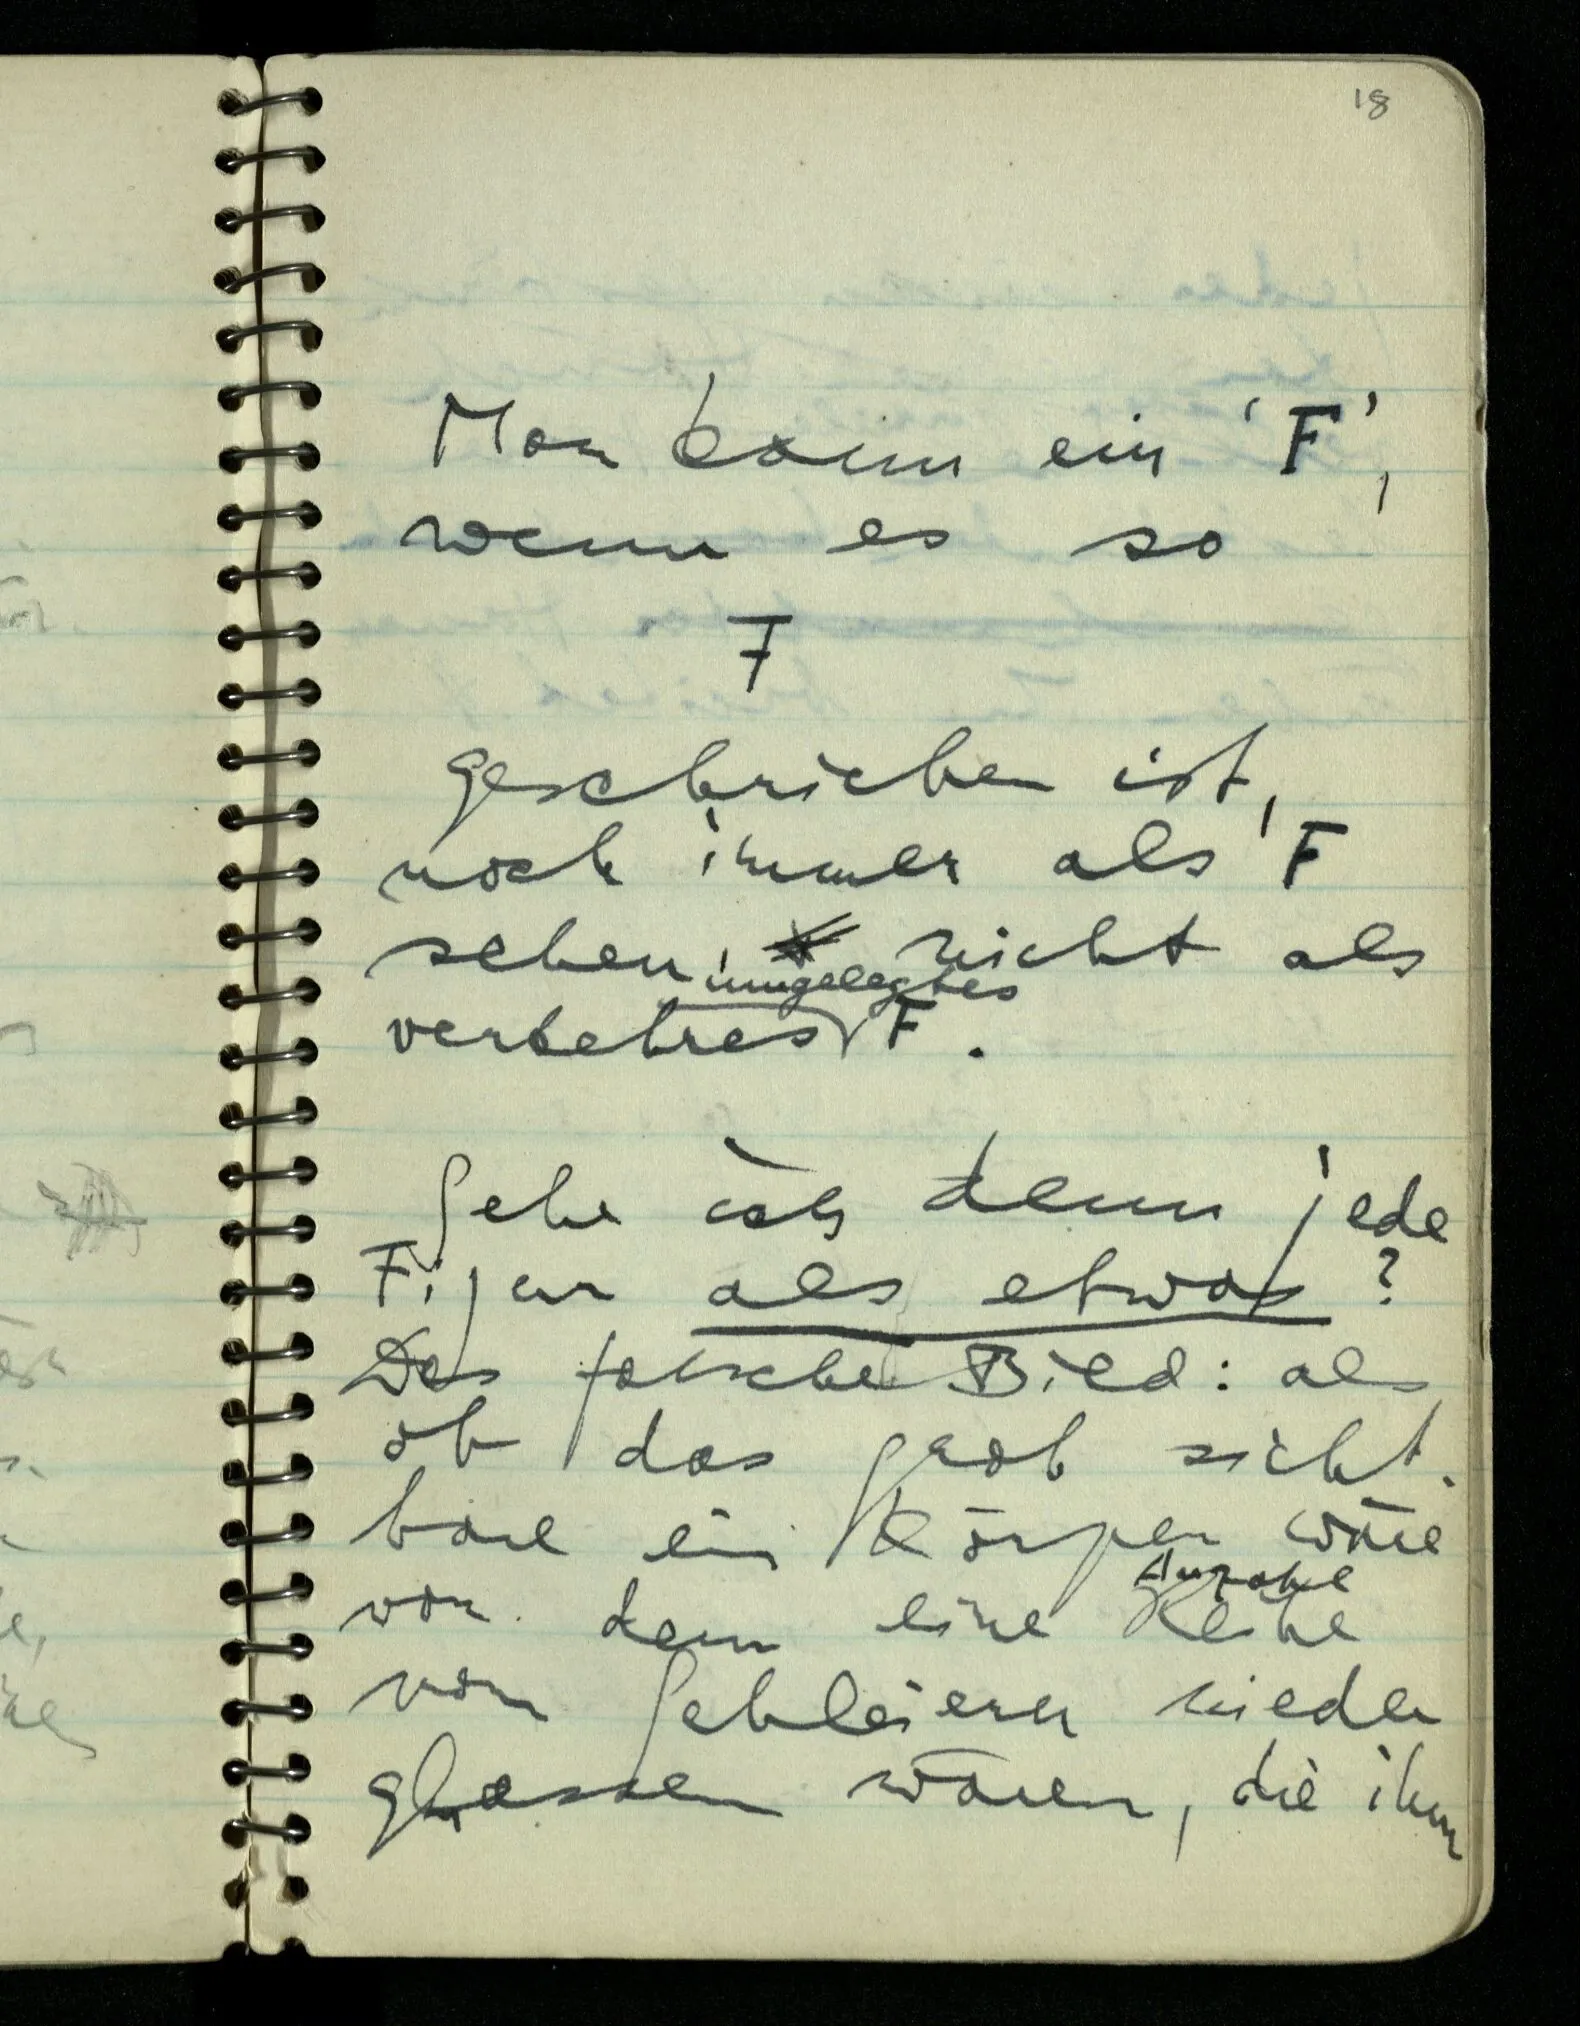 18
Man kann ein ‘F’,
wenn es so
ꟻ
geschrieben ist,
noch immer als F
sehen, nicht als
umgelegtes
verkehrtes F.
Sehe ich denn jede
Figur als etwas?
Das falsche Bild: als
ob das grob sicht-
bare ein Körper wäre
von dem eine Reihe
Anzahl
von Schleiern nieder
gelassen wären, die ihm